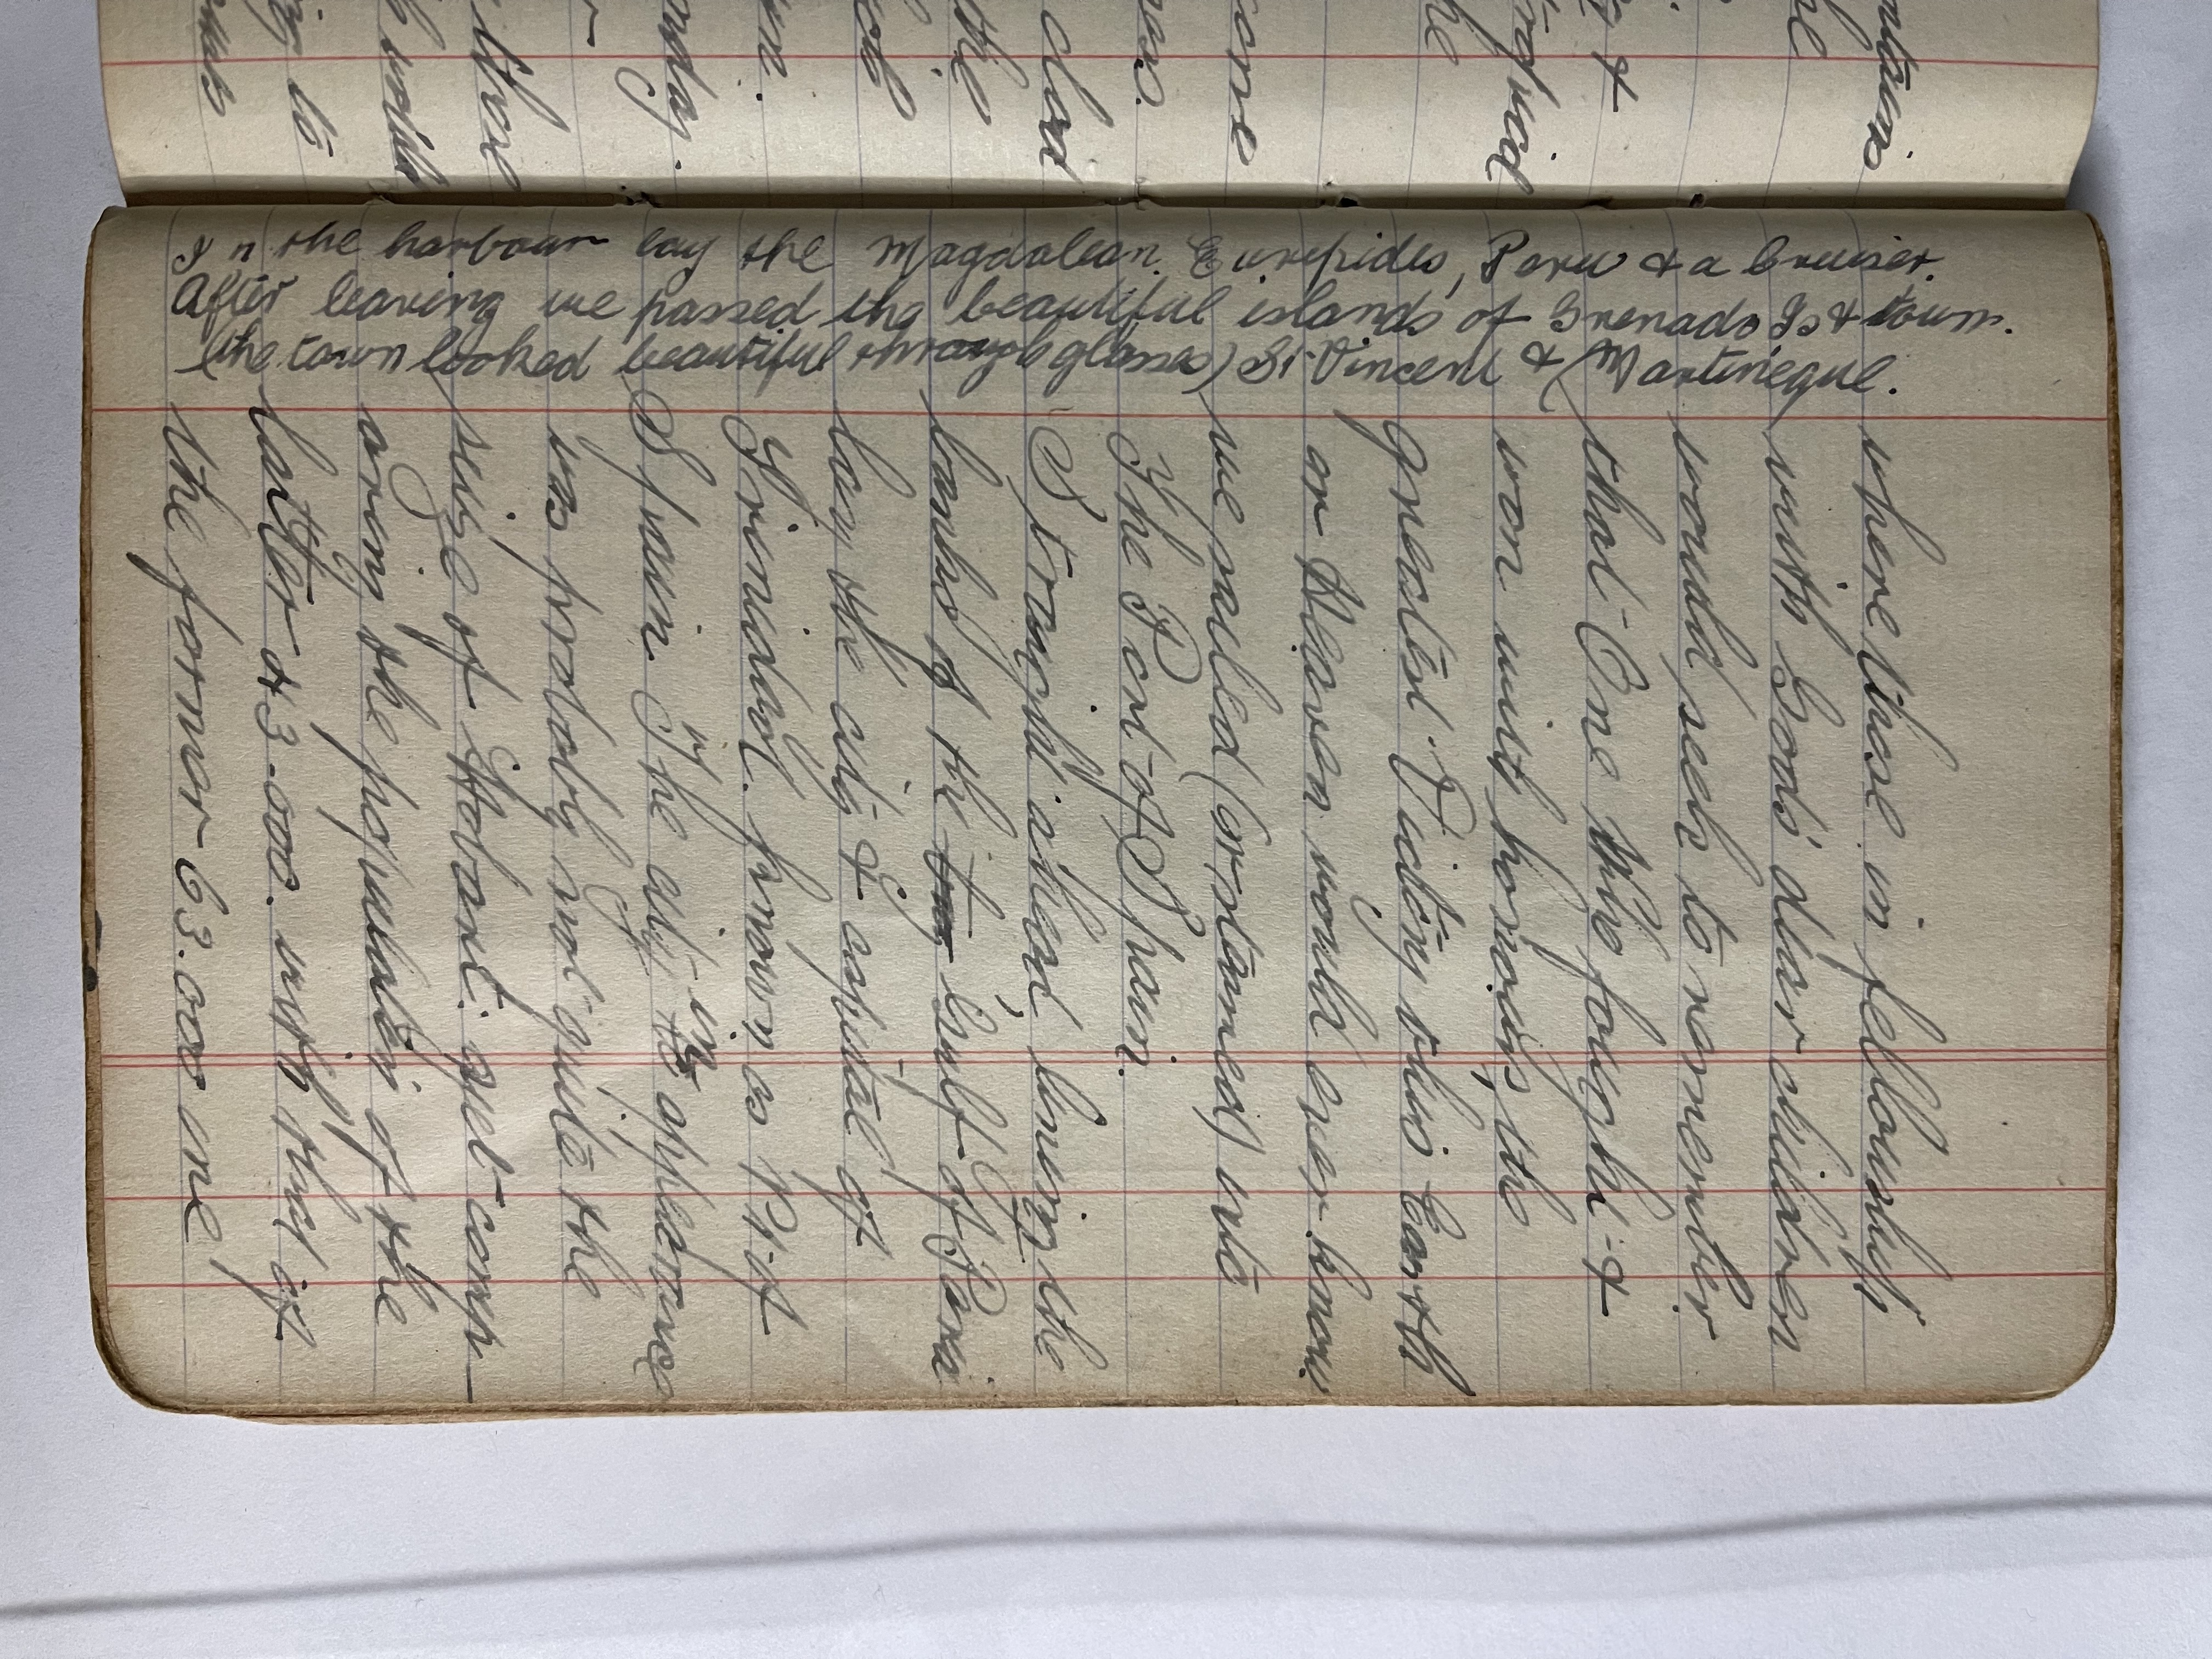 In the harbour lay the Magdalean. Euripides, Peru & a Cruiser.
After leaving we passed the beautiful islands of Grenada Is & town.
(the town looked beautiful through glasses) St Vincent & Martineque.
where those in fellowship
with Gods' dear children
would seek to remember
that One who fought &
won midst horrors, the
greatest Victory this Earth
or Heaven would ever know
we sailed (or steamed) into
The Port of Spain.
Straight ahead lining the
banks of the Gulf of Paria
lay the city & capital of
Trinidad. known as Pt of
Spain. The city in appearance
was probably not quite the
size of Hobart. yet comp-
aring the population of the
latter 43.000. with that of
the former 63.000 one
ntains.
he
&
he
come
nas.
clad
the
orday.
to